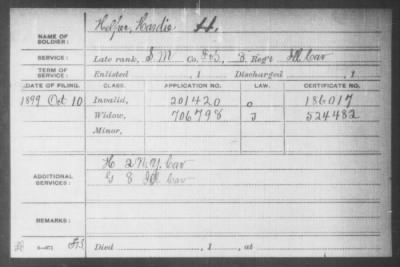 NAME OF SOLDIER: Helfer, Hardie H.
SERVICE: Late rank, S M Co. F&S, 8 Reg't Ill Cav
TERM OF SERVICE: Enlisted , 1 Discharged , 1
DATE OF FILING. CLASS. APPLICATION NO. LAW. CERTIFICATE NO.
1899 Oct 10 Invalid, 201420 o 186017
Widow, 706798 J 524482
Minor,
ADDITIONAL SERVICES: H 2 N.Y. Cav
G 8 Ill Cav
REMARKS:
3-471 F&S Died , 1 , at